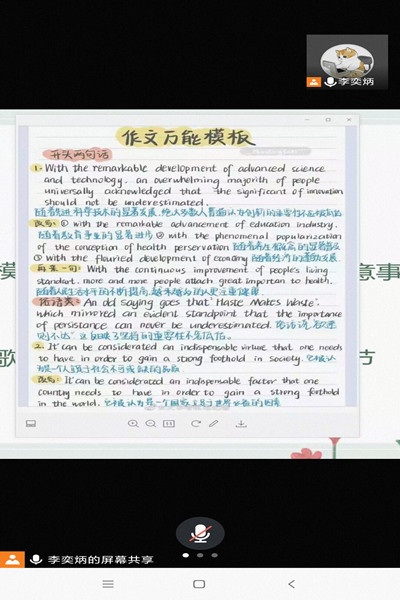 李奕炳
作文万能模板
开头两句话
1. With the remarkable development of advanced science
and technology, an overwhelming majorith of people
universally acknowledged that the significant of innovation
should not be underestimated.
随着先进科学技术的显著发展,绝大多数人普遍认为创新的重要性不应被低估
改写: ① with the remarkable advancement of education industry.
随着教育事业的显著进步 ② with the phenomenal popularization
of the conception of health perservation 随着养生概念的显著普及
③ With the fluried development of economy 随着经济的蓬勃发展.
再来一句: With the continuous improvement of people's living
standart, more and more people attach great importan to health.
随着人们生活水平的不断提高,越来越多的人更注重健康.
俗语类: An old saying goes that 'Haste Makes Waste'.
which mirrored an evident standpoint that the importance
of persistance can never be underestimated. 俗话说"欲速
则不达"这反映了坚持的重要性不容低估.
2. It can be considered an indispensable virtue that one needs
to have in order to gain a strong foothold in society. 它被认
为是一个人立足于社会不可或缺的品质
改写: It can be considered an indispensable factor that one
country needs to have in order to gain a strong forthold
in the world. 它被认为是一个国家立足于世界必备的因素
模
意事
歌
节
李奕炳的屏幕共享